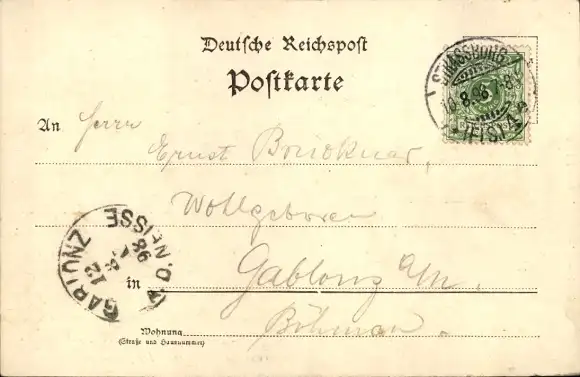 Deutsche Reichspost
Postkarte
STRASSBURG
10 8 96
(ELS) 1
An Herrn
Ernst
Wohlgeboren
GABLONZ A.D. NEISSE
12 8 96
in Gablonz a/N.
Böhmen.
Wohnung
(Straße und Hausnummer)